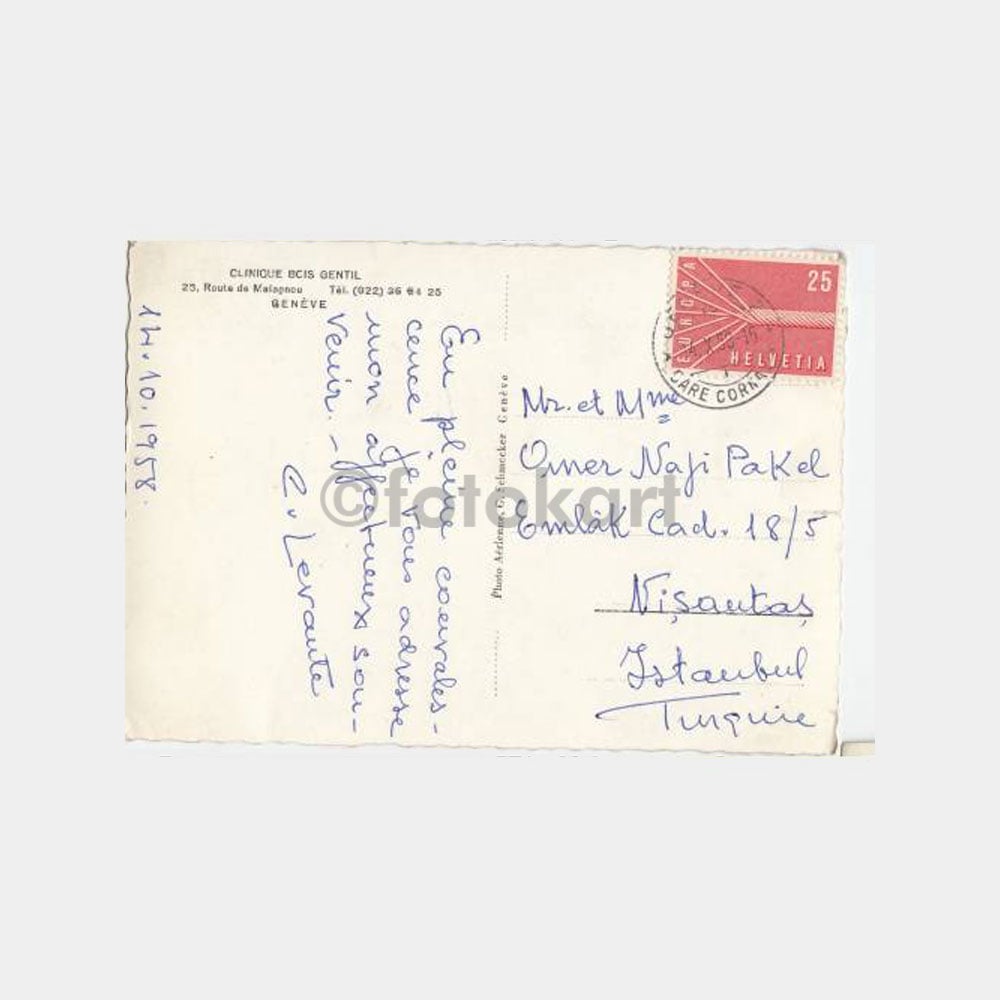 CLINIQUE BOIS GENTIL
25, Route de Malagnou Tél. (022) 36 64 25
GENÈVE
14.10.1958.
En pleine convales-
cence je vous adresse
mon affectueux sou-
venir. -
C. Levante
Photo Aérienne, G. Schmocker Genève
EUROPA
25
HELVETIA
GARE CORNAVIN
Mr. et Mme
Omer Naji Pakel
Emlâk Cad. 18/5
Nişantaş
Istanbul
Turquie
©fotokart